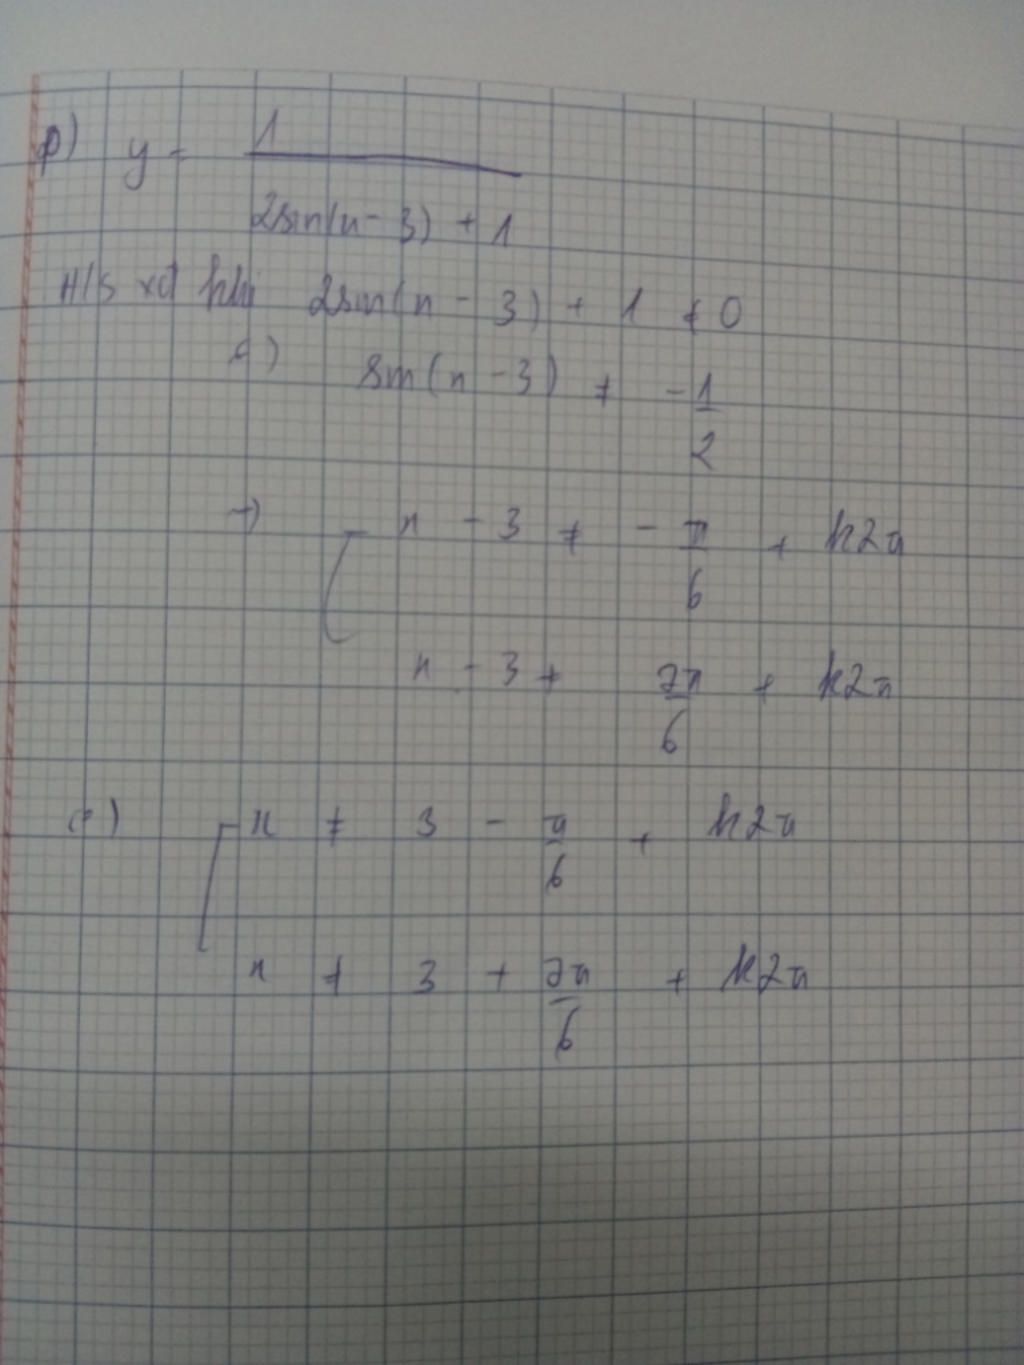 f) y = 1
2sin(x - 3) + 1
H/s xđ khi 2sin(x - 3) + 1 ≠ 0
(=) sin(x - 3) ≠ - 1/2
=) x - 3 ≠ - π/6 + k2π
x - 3 ≠ 7π/6 + k2π
(=) x ≠ 3 - π/6 + k2π
x ≠ 3 + 7π/6 + k2π